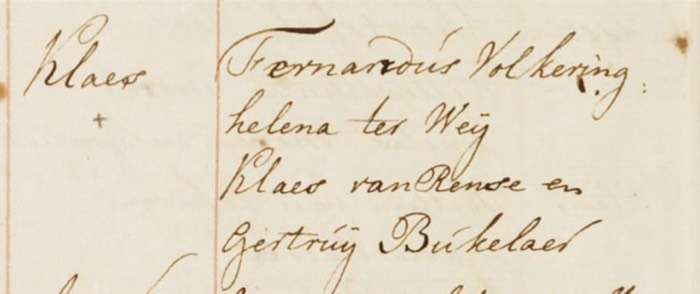 Klaes
+
Fernandús Volkering
helena ter Weÿ
Klaes van Rense en
Gertrúÿ Búkelaer